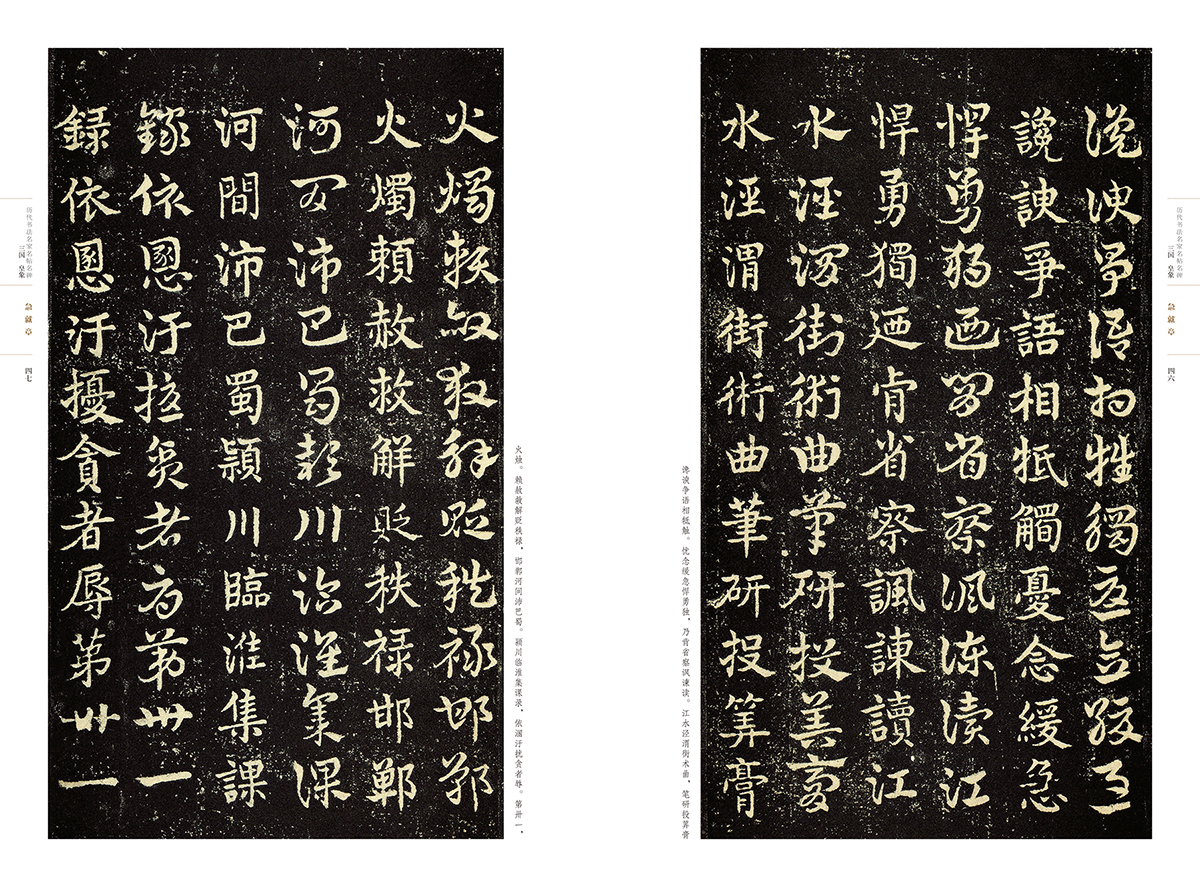 历代书法名家名帖名碑
三国 皇象
急就章
四六
讒諛爭語相牴觸憂念緩急
讒諛爭語相抵觸憂念緩急
悍勇獨迺肯省察諷諫讀江
悍勇獨迺肯省察諷諫讀江
水涇渭街術曲筆研投筭膏
水涇渭街術曲筆研投筭膏
谗谀争语相牴触。忧念缓急悍勇独，乃肯省察讽谏读。江水泾渭街术曲，笔研投筭膏
火烛。赖赦救解贬秩禄，邯郸河间沛巴蜀。颍川临淮集课录，依溷汙扰贪者辱。第卅一，
火燭賴赦救解貶秩祿邯鄲
火燭賴赦救解貶秩祿邯鄲
河間沛巴蜀潁川臨淮集課
河間沛巴蜀潁川臨淮集課
録依圂汙擾貪者辱第卅一
録依圂汙擾貪者辱第卅一
历代书法名家名帖名碑
三国 皇象
急就章
四七